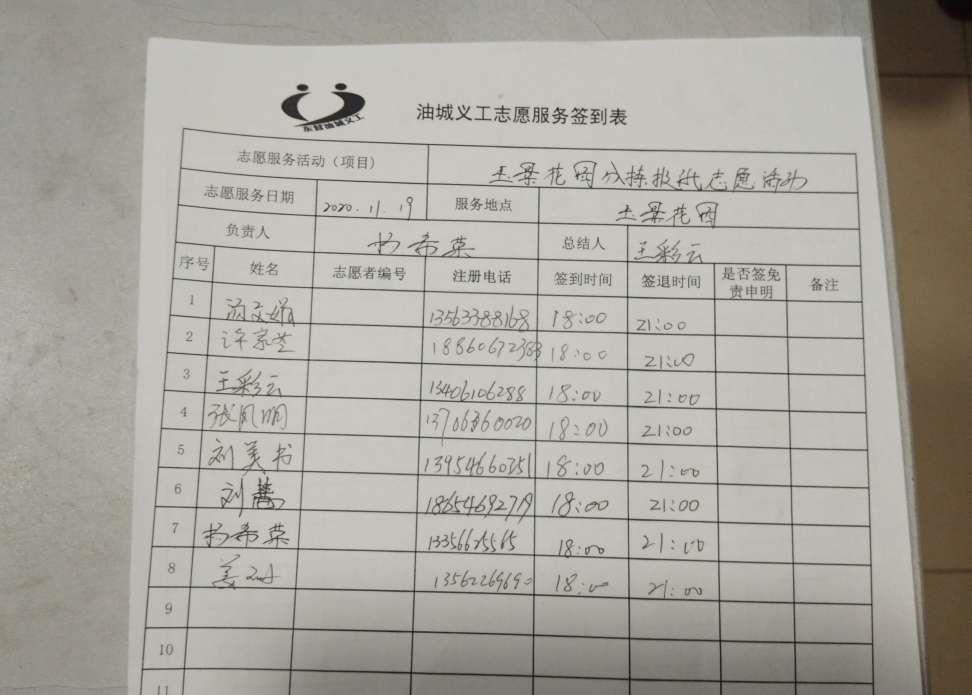 东营油城义工
油城义工志愿服务签到表
志愿服务活动（项目） 王景花园分拣报纸志愿活动
志愿服务日期 2020.11.19 服务地点 王景花园
负责人 杨希英 总结人 王彩云
序号 姓名 志愿者编号 注册电话 签到时间 签退时间 是否签免责申明 备注
1 13563388168 18:00 21:00
2 18860672383 18:00 21:00
3 王彩云 13406106288 18:00 21:00
4 张凤明 13706860020 18:00 21:00
5 刘美书 13954660251 18:00 21:00
6 刘 18654692719 18:00 21:00
7 杨希英 13356625565 18:00 21:00
8 姜 13562269690 18:00 21:00
9
10
11